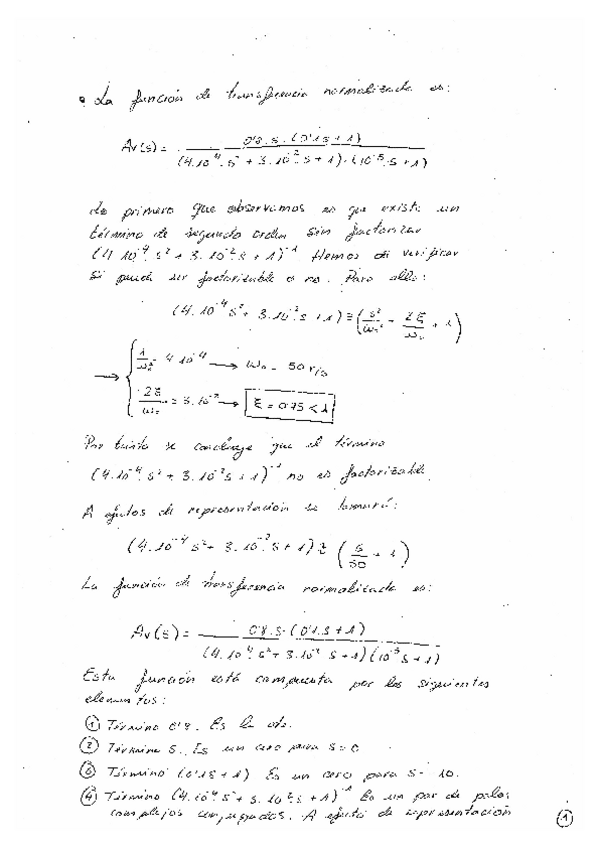 • La función de transferencia normalizada es:
Av(s) = 0'8·s·(0'1s+1) / (4·10⁻⁴·s² + 3·10⁻²·s + 1)·(10⁻⁵·s + 1)
Lo primero que observamos es que existe un
término de segundo orden sin factorizar
(4·10⁻⁴·s² + 3·10⁻²·s + 1)⁻¹. Hemos de verificar
si puede ser factorizable o no. Para ello:
(4·10⁻⁴s² + 3·10⁻²·s + 1) ≡ (s²/ωn² + 2ξ/ωn + 1)
→ { 1/ωn² = 4·10⁻⁴ → ωn = 50 r/s
2ξ/ωn = 3·10⁻² → ξ = 0'75 < 1
Por tanto se concluye que el término
(4·10⁻⁴·s² + 3·10⁻²s + 1)⁻¹ no es factorizable.
A efectos de representación se tomará:
(4·10⁻⁴s² + 3·10⁻²s + 1) ≅ (s/50 + 1)
La función de transferencia normalizada es:
Av(s) = 0'8·s·(0'1·s+1) / (4·10⁻⁴·s² + 3·10⁻²s + 1)(10⁻⁵s + 1)
Esta función está compuesta por los siguientes
elementos:
① Término 0'8. Es la cte.
② Término s. Es un cero para s=0
③ Término (0'1s+1) Es un cero para s= 10.
④ Término (4·10⁻⁴s² + 3·10⁻²s + 1)⁻¹ Es un par de polos
complejos conjugados. A efectos de representación
1